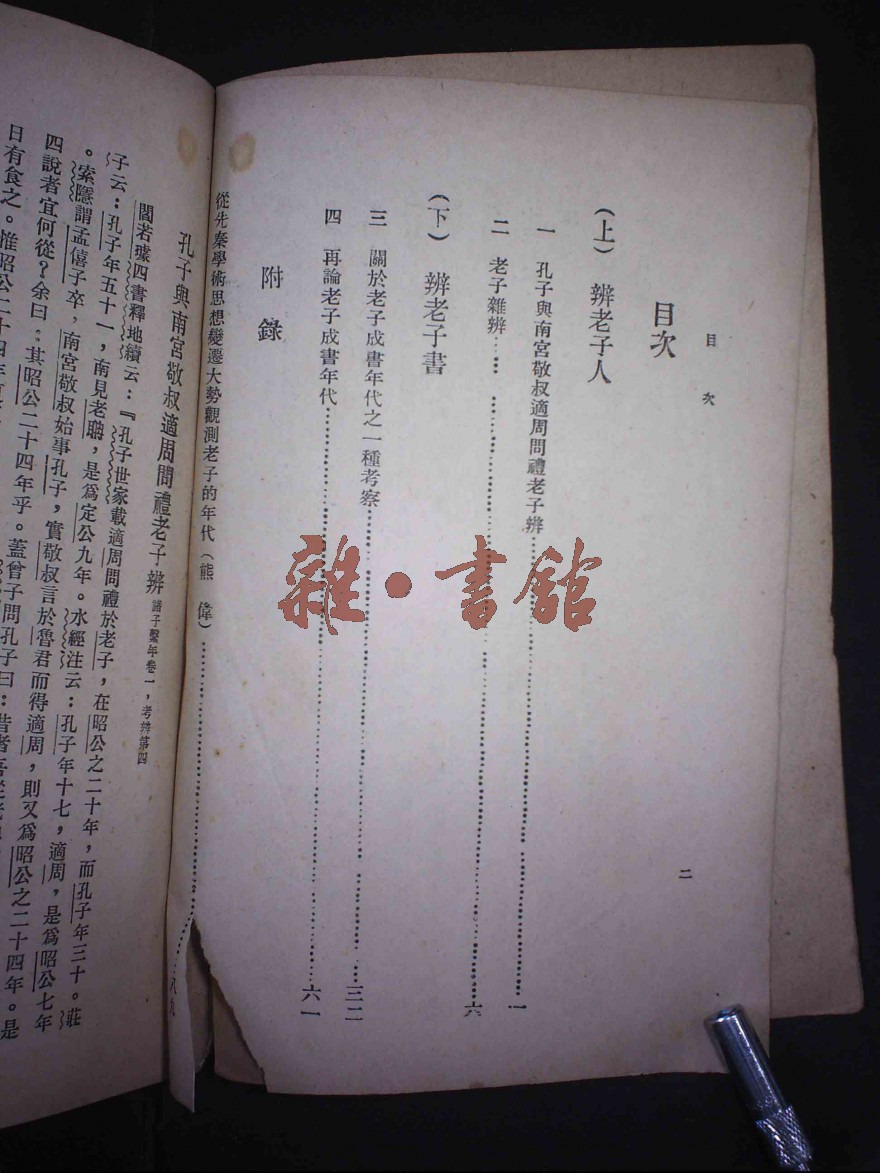 目次
二
目次
（上） 辨老子人
一 孔子與南宮敬叔適周問禮老子辨……一
二 老子雜辨……六
（下） 辨老子書
三 關於老子成書年代之一種考察……三二
四 再論老子成書年代……六一
附錄
從先秦學術思想變遷大勢觀測老子的年代（熊 偉）……八九
雜·書館
孔子與南宮敬叔適周問禮老子辨 諸子繫年卷一，考辨第四
閻若璩四書釋地續云：『孔子世家載適周問禮於老子，在昭公之二十年，而孔子年三十。莊
子云：孔子年五十一，南見老聃，是爲定公九年。水經注云：孔子年十七，適周，是爲昭公七年
。索隱謂孟僖子卒，南宮敬叔始事孔子，實敬叔言於魯君而得適周，則又爲昭公之二十四年。是
四說者宜何從？余曰：其昭公二十四年乎。蓋曾子問孔子曰：昔者吾從
日有食之。惟昭公二十四年